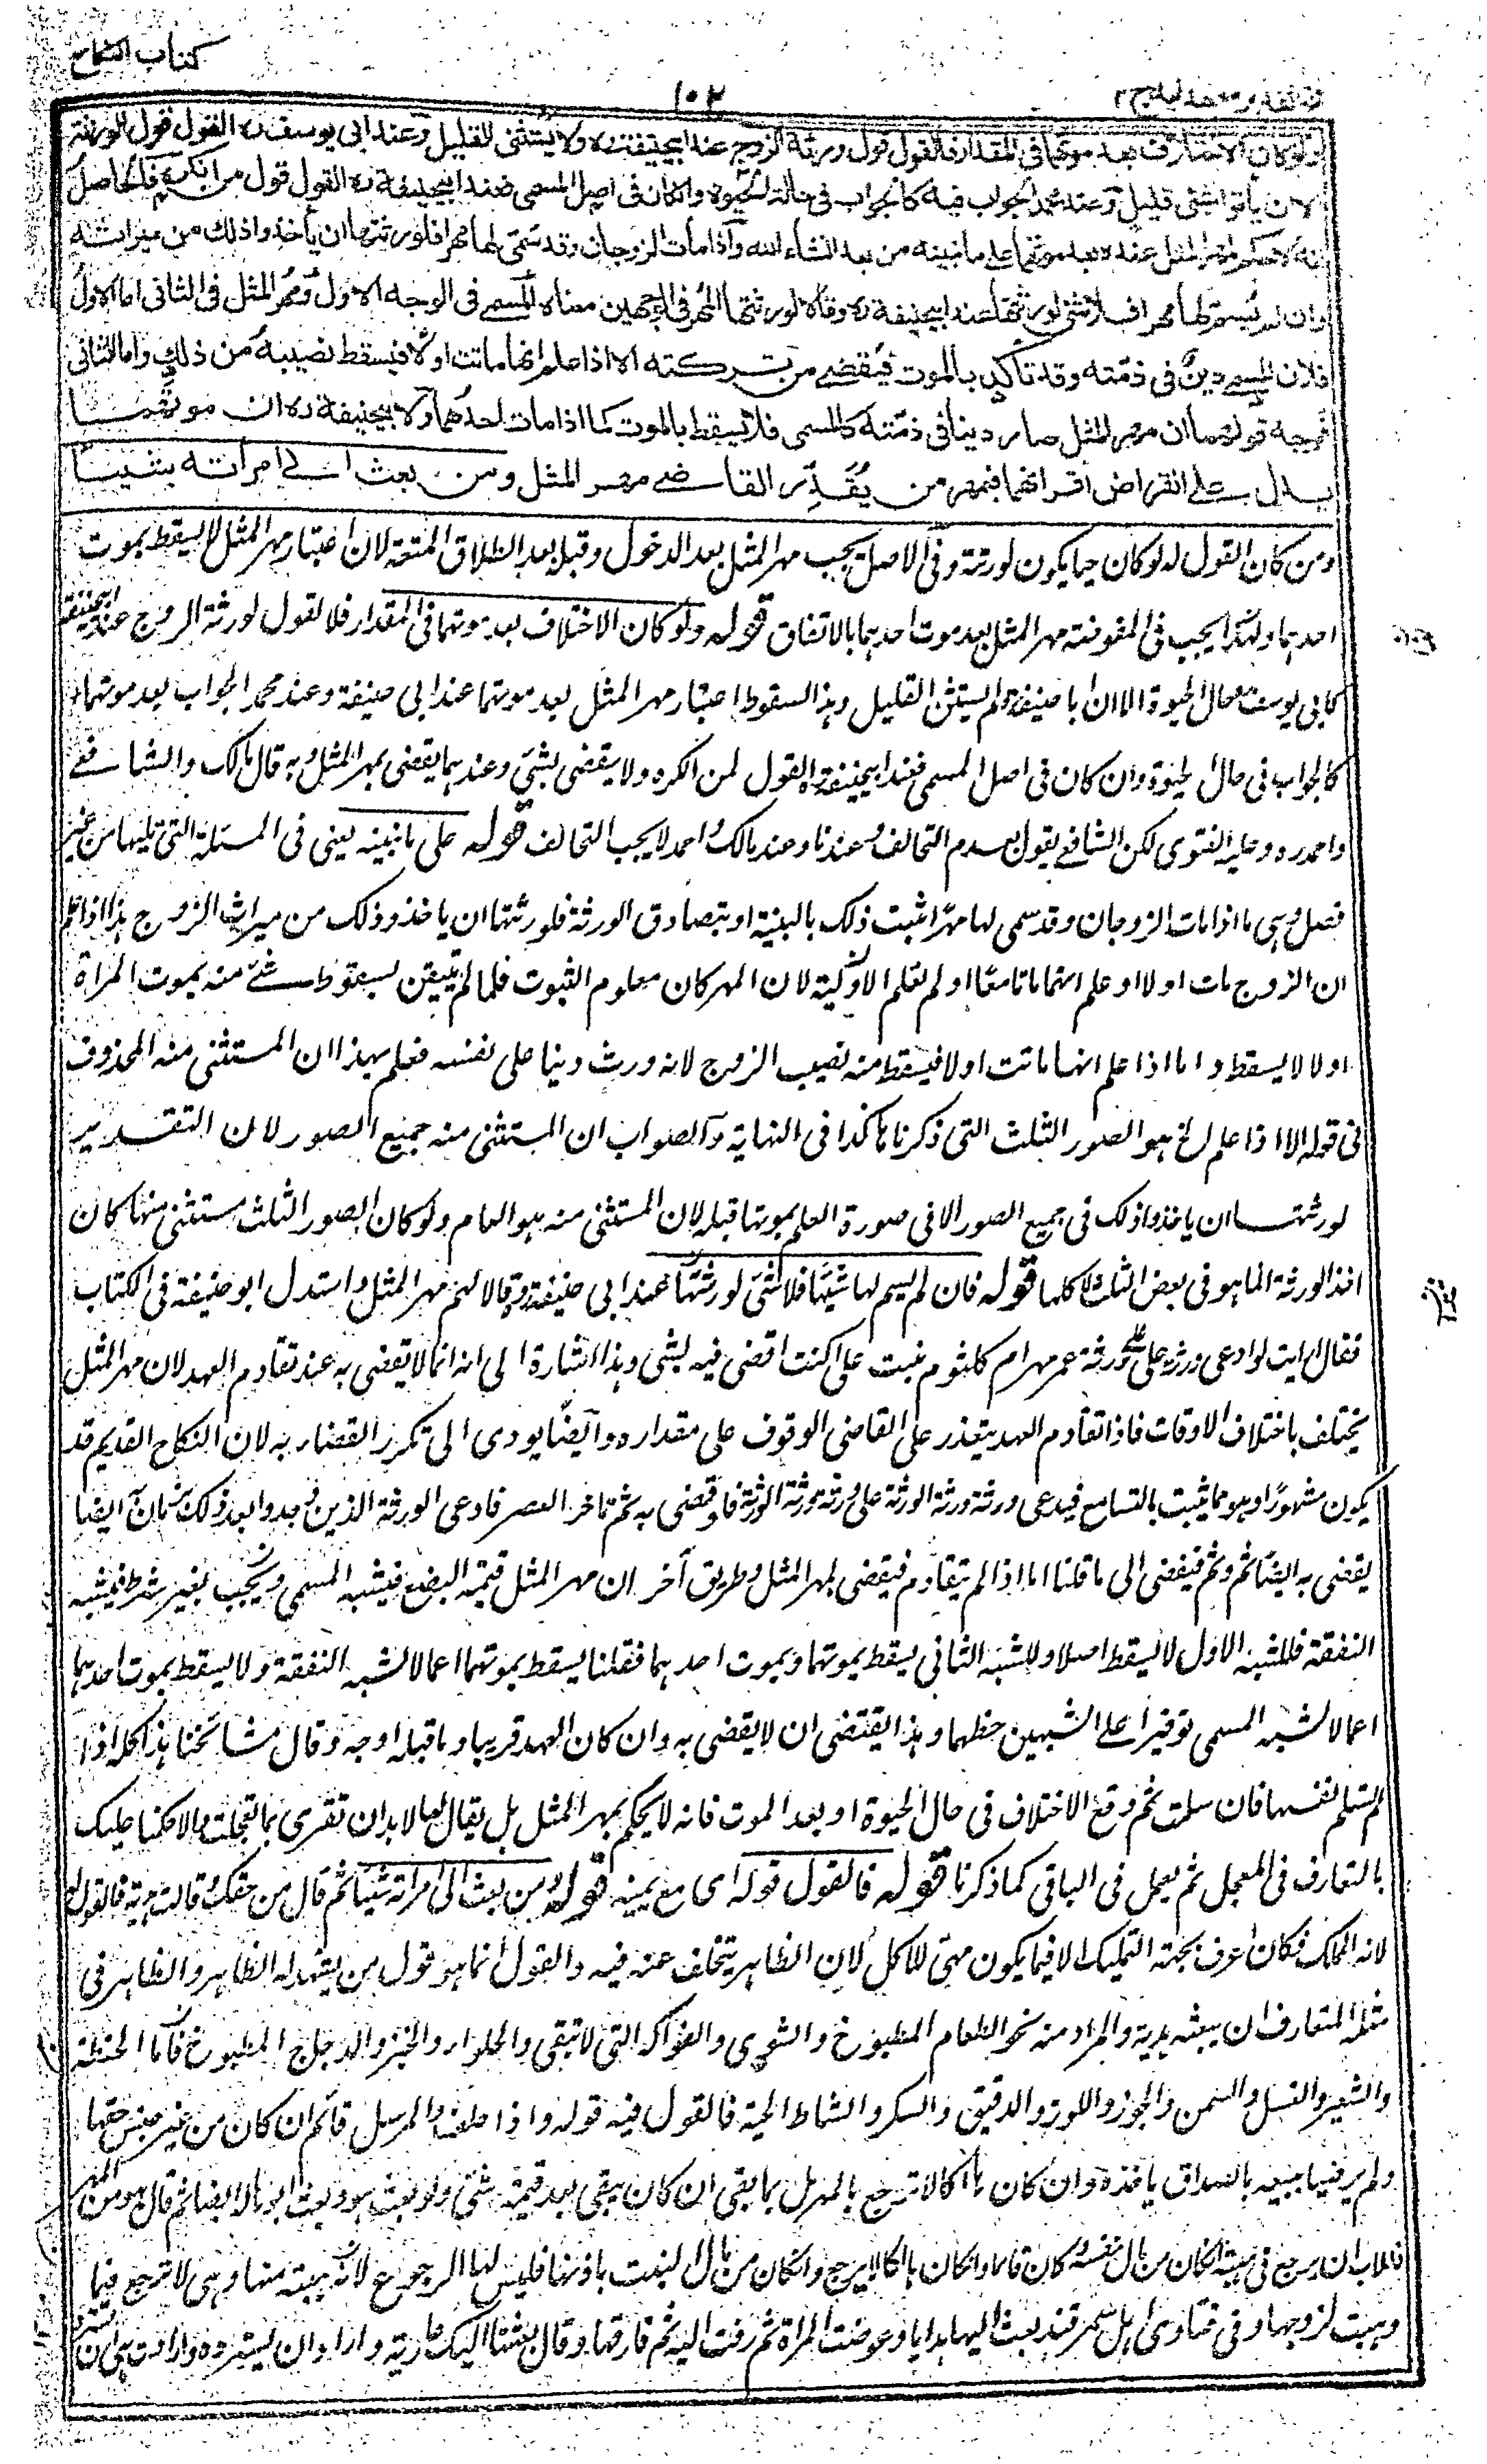 كتاب النكاح
١٠٢
فتح القدير مع هدايه ج ٢
ولو كان الاختلاف بعد موتهما فى المقدار فالقول قول ورثة الزوج عند ابيحنيفة ره ولا يستثنى القليل وعند ابى يوسف ره القول قول الورثة
الا ان يأتوا بشئ قليل وعند محمد الجواب فيه كالجواب فى حالة الحيوة وان كان فى اصل المسمى فعند ابيحنيفة ره القول قول من انكره فالحاصل
انه لا حكم لمهر المثل عنده بعد موتهما على ما نبينه من بعد انشاء الله واذا مات الزوجان وقد سمى لها مهرا فلورثتها ان يأخذوا ذلك من ميراثه
وان لم يسم لها مهرا فلا شئ لورثتها عند ابيحنيفة ره وقالا لورثتها المهر فى الوجهين معناه المسمى فى الوجه الاول ومهر المثل فى الثانى اما الاول
فلان المسمى دين فى ذمته وقد تأكد بالموت فيقضى من تركته الا اذا علم انها ماتت اولا فيسقط نصيبه من ذلك واما الثانى
فوجه قولهما ان مهر المثل صار دينا فى ذمته كالمسمى فلا يسقط بالموت كما اذا مات احدهما ولابيحنيفة ره ان موتهما
يدل على انقراض اقرانهما فبمهر من يقدر القاضى مهر المثل ومن بعث الى امرأته بشيئا
ومن كان القول له لو كان حيا يكون لورثته وفى الاصل يجب مهر المثل بعد الدخول وقبله بعد الطلاق المتعة لان اعتبار مهر المثل لا يسقط بموت
احدهما ولهذا يجب فى المفوضة مهر المثل بعد موت احدهما بالاتفاق قوله ولو كان الاختلاف بعد موتهما فى المقدار فالقول لورثة الزوج عند ابيحنيفة
كابى يوسف حال الحيوة الا ان ابا حنيفة لم يستثن القليل وهذا لسقوط اعتبار مهر المثل بعد موتهما عند ابى حنيفة وعند محمد الجواب بعد موتهما
كالجواب فى حال الحيوة وان كان فى اصل المسمى فعند ابيحنيفة ره القول لمن انكره ولا يقضى بشئ وعندهما يقضى بمهر المثل وبه قال مالك والشافعى
واحمد ره وعليه الفتوى لكن الشافعى يقول بعدم التحالف وعندنا وعند مالك واحمد لا يجب التحالف قوله على ما نبينه يعنى فى المسئلة التى تليها من غير
فصل وهى ما اذا مات الزوجان وقد سمى لها مهرا ثبت ذلك بالبينة او بتصادق الورثة فلورثتها ان ياخذوا ذلك من ميراث الزوج هذا اذا علم
ان الزوج مات اولا او علم انهما ماتا معا او لم تعلم الاولية لان المهر كان معلوم الثبوت فلما لم يتيقن بسقوط شئ منه بموت المرأة
اولا لا يسقط واما اذا علم انها ماتت اولا فيسقط منه نصيب الزوج لانه ورث دينا على نفسه فعلم بهذا ان المستثنى منه المحذوف
فى قوله الا اذا علم الخ هو الصور الثلث التى ذكرناها كذا فى النهاية والصواب ان المستثنى منه جميع الصور لان التقدير
لورثتها ان ياخذوا ذلك فى جميع الصور الا فى صورة العلم بموتها قبله لان المستثنى منه هو العام ولو كان الصور الثلث مستثنى منها كان
اخذ الورثة انما هو فى بعض الثلث لا كلها قوله فان لم يسم لها شيئا فلا شئ لورثتها عند ابى حنيفة وقالا لهم مهر المثل واستدل ابو حنيفة فى الكتاب
فقال ارايت لو ادعى ورثة على على ورثة عمر مهر ام كلثوم بنت على اكنت اقضى فيه بشئ وهذا اشارة الى انه انما لا يقضى به عند تقادم العهد لان مهر المثل
يختلف باختلاف الاوقات فاذا تقادم العهد يتعذر على القاضى الوقوف على مقداره وايضا يودى الى تكرر القضاء به لان النكاح القديم قد
يكون مشهورا وهو مما يثبت بالتسامع فيدعى ورثة ورثة الورثة على ورثة ورثة الورثة فلو قضى به ثم تاخر العصر فادعى الورثة الذين وجدوا بعد ذلك بزمان ايضا
يقضى به ايضا ثم وثم فيفضى الى ما قلنا اما اذا لم يتقادم فيقضى بمهر المثل وطريق آخر ان مهر المثل قيمة البضع فيشبه المسمى ويجب بغير شرط فيشبه
النفقة فللشبه الاول لا يسقط اصلا وللشبه الثانى يسقط بموتهما وبموت احدهما فقلنا يسقط بموتهما اعمالا لشبه النفقة ولا يسقط بموت احدهما
اعمالا لشبه المسمى توفيرا على الشبهين حظهما وهذا يقتضى ان لا يقضى به وان كان العهد قريبا وما قبله اوجه وقال مشائخنا هذا كله اذا
لم تسلم نفسها فان سلمت ثم وقع الاختلاف فى حال الحيوة او بعد الموت فانه لا يحكم بمهر المثل بل يقال لها لا بد ان تقرى بما تعجلت والا حكمنا عليك
بالتعارف فى المعجل ثم يعمل فى الباقى كما ذكرنا قوله فالقول قوله اى مع يمينه قوله ومن بعث الى امراته شيئا ثم قال من حقك وقالت هدية فالقول له
لانه المملك فكان اعرف بجهة التمليك الا فيما يكون مهيئ للاكل لان الظاهر يتخلف عنه فيه والقول انما هو قول من يشهد له الظاهر والظاهر فى
مثله المتعارف ان يبعثه هدية والمراد منه نحو الطعام المطبوخ والشوى والفواكه التى لا تبقى والحلواء والخبز والدجاج المطبوخ فاما الحنطة
والشعير والعسل والسمن والجوز واللوز والدقيق والسكر والشاة الحية فالقول فيه قوله واذا حلف والمرسل قائم ان كان من غير جنس حقها
ولم يرضيا ببيعه بالصداق ياخذه وان كان هالكا لا ترجع بالمهر بل بما بقى ان كان يبقى بعد قيمته شئ ولو بعث هو وبعث ابوها له ايضا ثم قال هو من المهر
فللاب ان يرجع فى هبته ان كان من مال نفسه وكان قائما وان كان هالكا لا يرجع وان كان من مال البنت باذنها فليس لها الرجوع لانه هبة منها وهى لا ترجع فيما
وهبت لزوجها وفى فتاوى اهل سمرقند بعث اليها هدايا وعوضت المرأة ثم زفت اليه ثم فارقها وقال بعثتها اليك عارية واراد ان يسترده وارادت هى ان تسترد